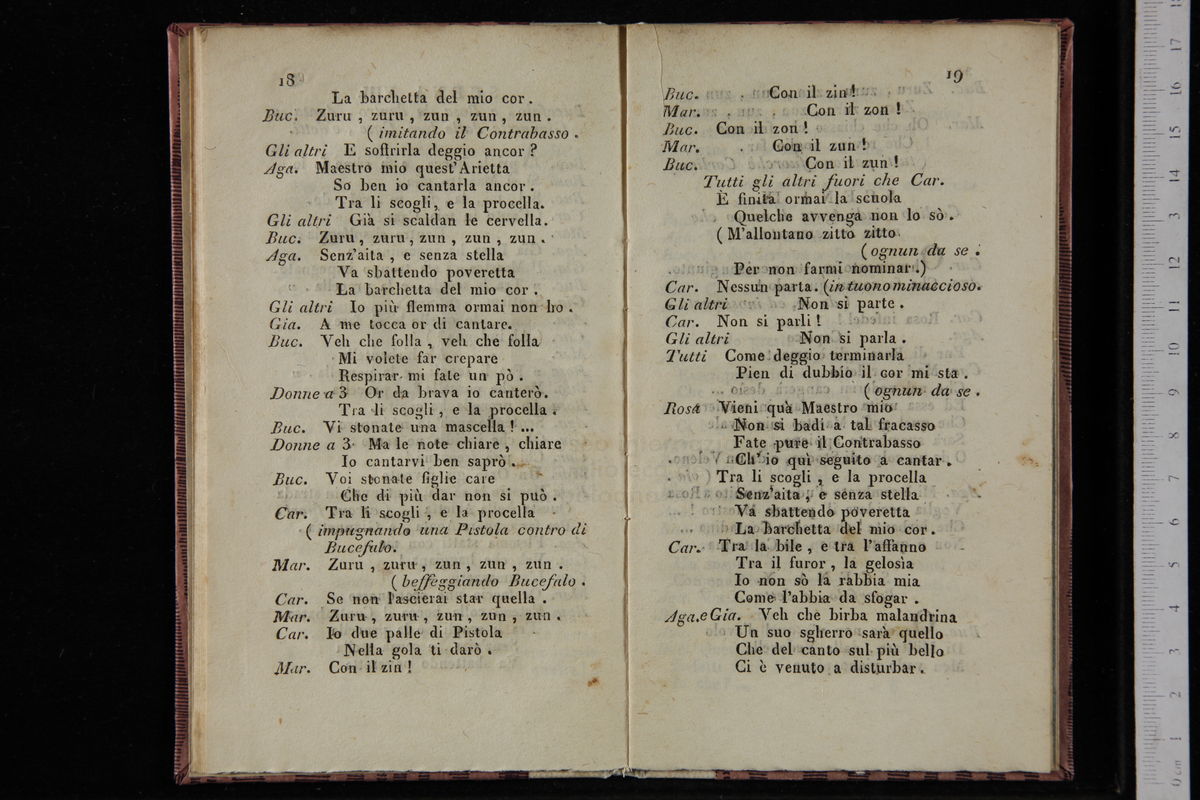 18
La barchetta del mio cor.
Buc. Zuru, zuru, zun, zun, zun.
( imitando il Contrabasso.
Gli altri E soffrirla deggio ancor?
Aga. Maestro mio quest'Arietta
So ben io cantarla ancor.
Tra li scogli, e la procella.
Gli altri Già si scaldan le cervella.
Buc. Zuru, zuru, zun, zun, zun.
Aga. Senz'aita, e senza stella
Va sbattendo poveretta
La barchetta del mio cor.
Gli altri Io più flemma ormai non ho.
Gia. A me tocca or di cantare.
Buc. Veh che folla, veh che folla
Mi volete far crepare
Respirar mi fate un pò.
Donne a 3 Or da brava io canterò.
Tra li scogli, e la procella.
Buc. Vi stonate una mascella! ...
Donne a 3 Ma le note chiare, chiare
Io cantarvi ben saprò.
Buc. Voi stonate figlie care
Che di più dar non si può.
Car. Tra li scogli, e la procella
( impugnando una Pistola contro di
Bucefalo.
Mar. Zuru, zuru, zun, zun, zun.
( beffeggiando Bucefalo.
Car. Se non lascierai star quella.
Mar. Zuru, zuru, zun, zun, zun.
Car. Io due palle di Pistola
Nella gola ti darò.
Mar. Con il zin!
19
Buc. Con il zin!
Mar. Con il zon!
Buc. Con il zon!
Mar. Con il zun!
Buc. Con il zun!
Tutti gli altri fuori che Car.
È finita ormai la scuola
Quelche avvenga non lo sò.
( M'allontano zitto zitto
( ognun da se.
Per non farmi nominar.)
Car. Nessun parta. (in tuono minaccioso.
Gli altri Non si parte.
Car. Non si parli!
Gli altri Non si parla.
Tutti Come deggio terminarla
Pien di dubbio il cor mi sta.
( ognun da se.
Rosa Vieni quà Maestro mio
Non si badi a tal fracasso
Fate pure il Contrabasso
Ch'io quì seguito a cantar.
Tra li scogli, e la procella
Senz'aita, e senza stella
Va sbattendo poveretta
La barchetta del mio cor.
Car. Tra la bile, e tra l'affanno
Tra il furor, la gelosìa
Io non sò la rabbia mia
Come l'abbia da sfogar.
Aga. e Gia. Veh che birba malandrina
Un suo sgherro sarà quello
Che del canto sul più bello
Ci è venuto a disturbar.
0 cm 1 2 3 4 5 6 7 8 9 10 11 12 13 14 15 16 17 18